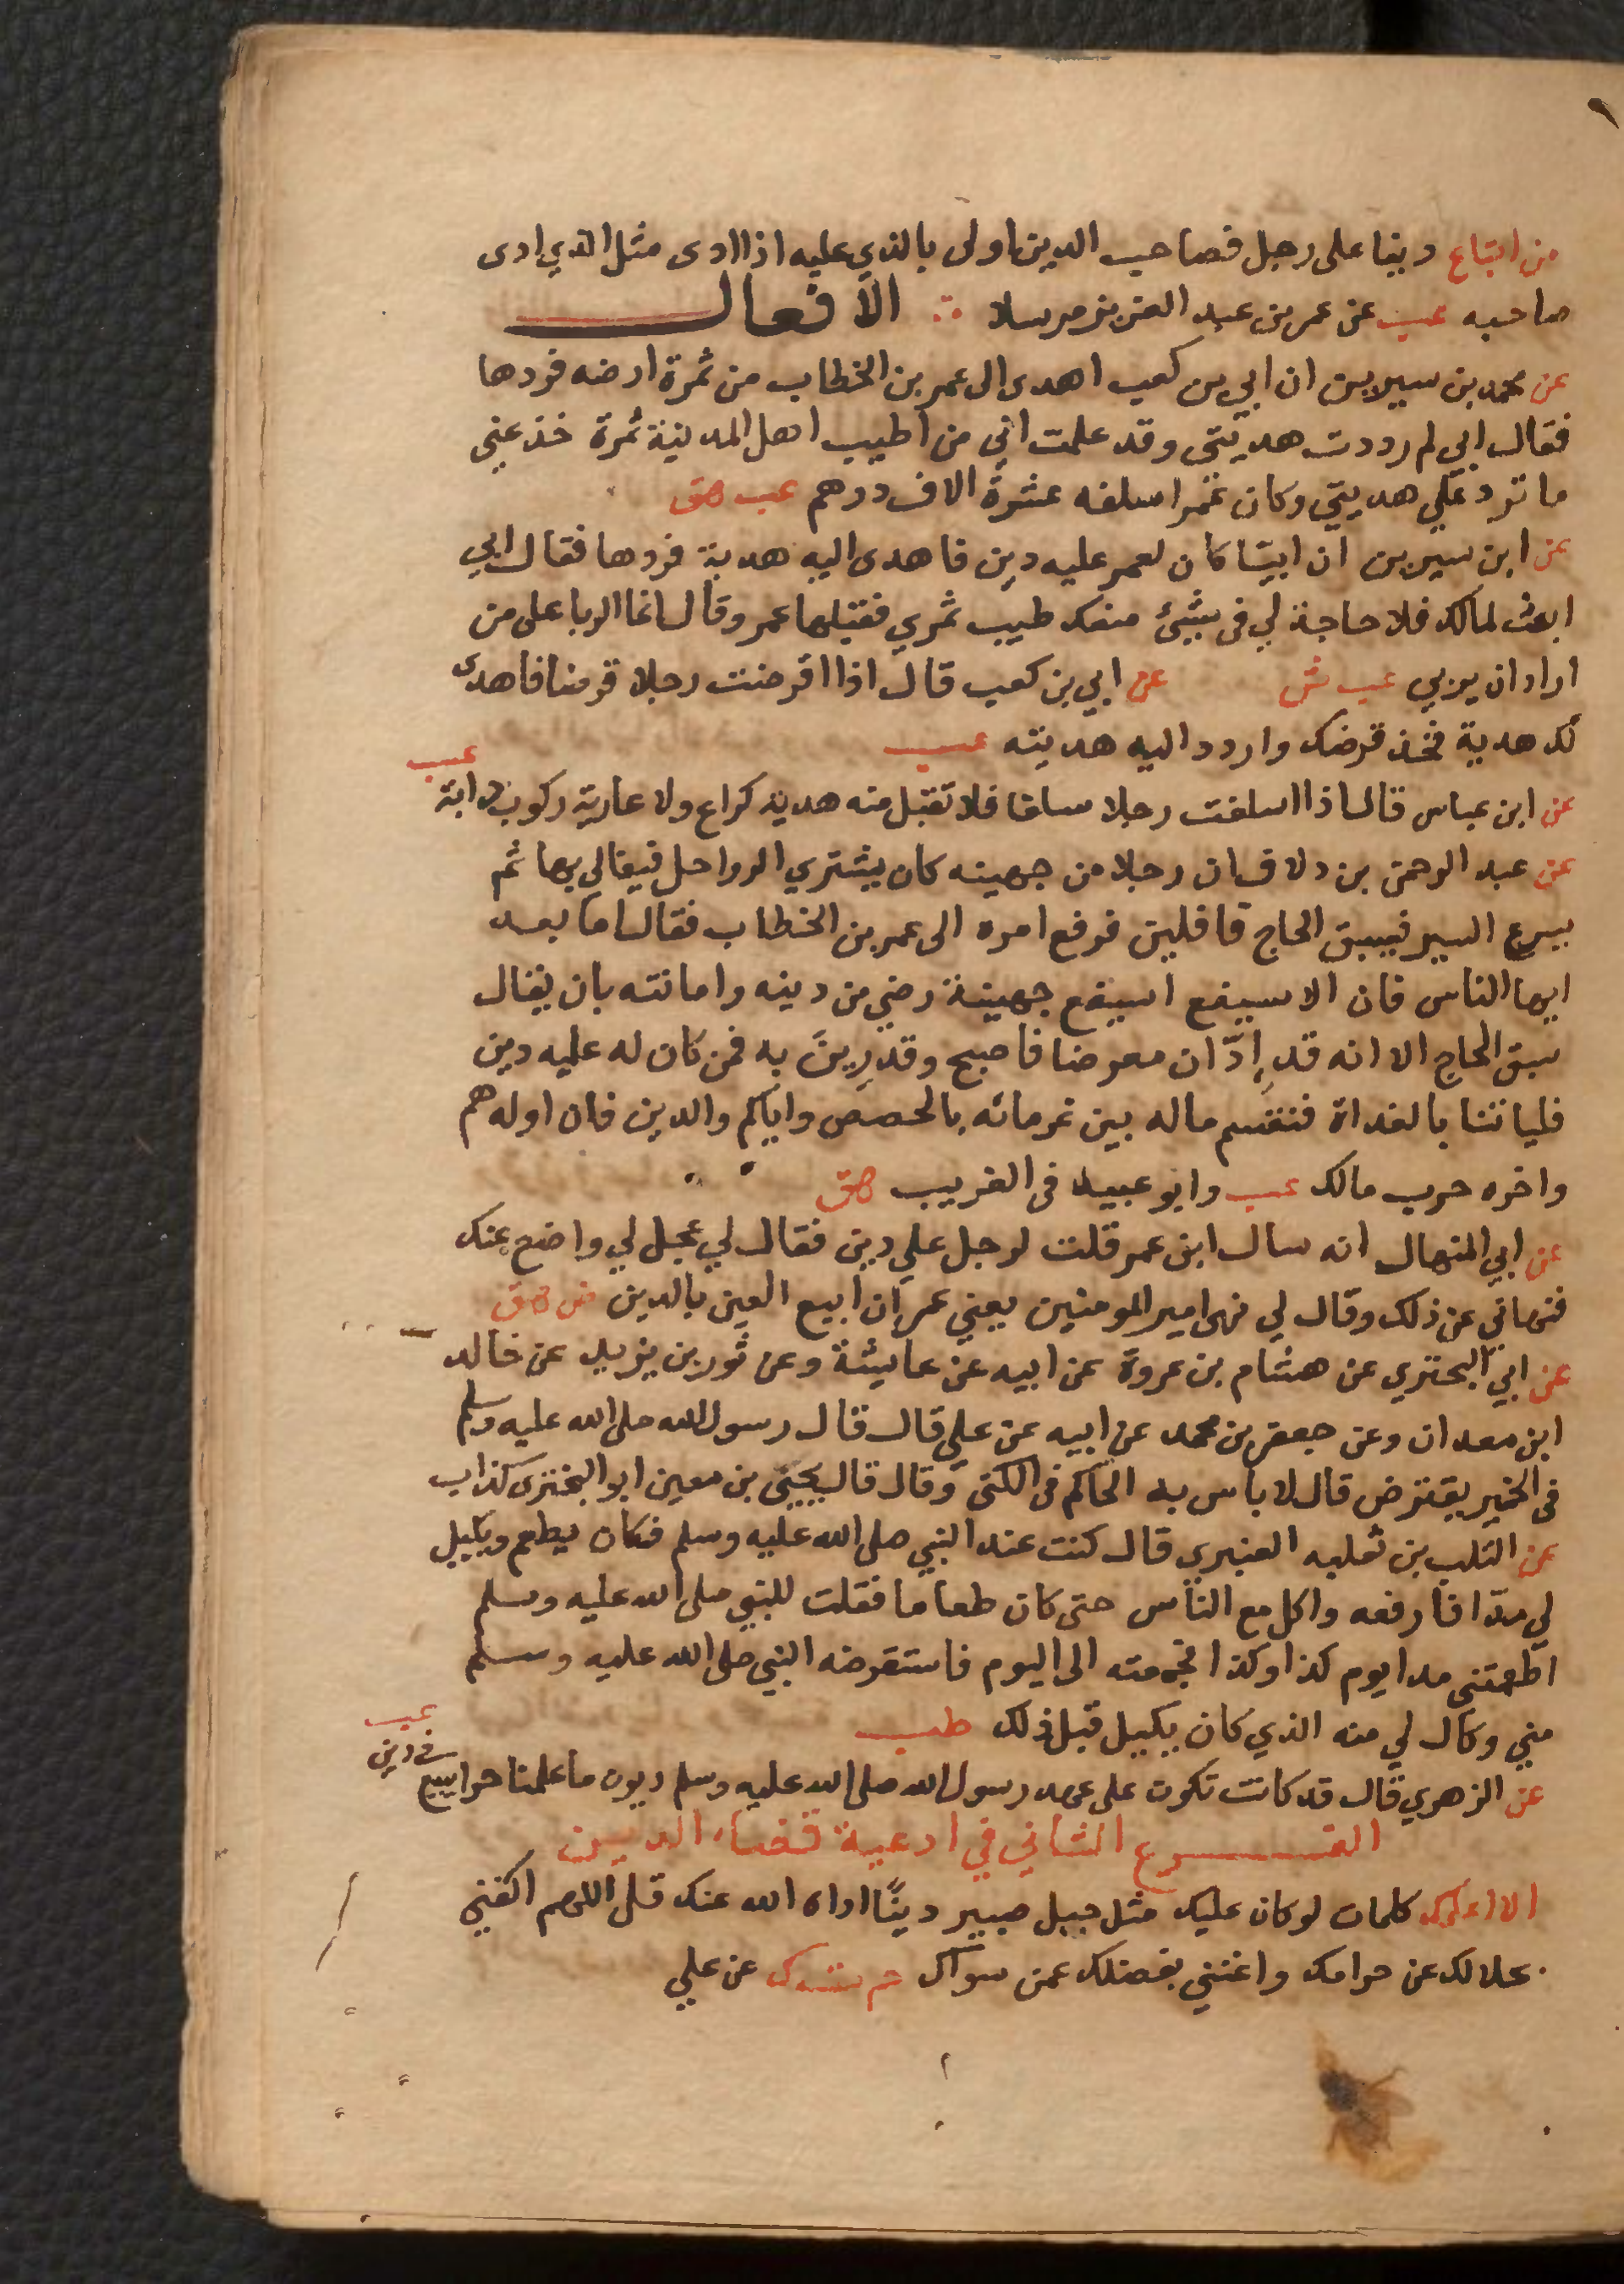 من ابتاع دينا على رجل فصاحب الدين اولى بالذي عليه اذا ادى مثل الذي ادى
صاحبه عب عن عمر بن عبد العزيز مرسلا الافعال
عن محمد بن سيرين ان ابي بن كعب اهدى الى عمر بن الخطاب من ثمرة ارضه فردها
فقال ابي لم رددت هديتي وقد علمت اني من اطيب اهل المدينة ثمرة خذ عني
ما ترد علي هديتي وكان عمر اسلفه عشرة الاف درهم عب هق
عن ابن سيرين ان ابيا كان لعمر عليه دين فاهدى اليه هدية فردها فقال ابي
ابعث لمالك فلا حاجة لي في شيئ منعك طيب ثمري فقبلها عمر وقال انما الربا على من
اراد ان يربي عب ش عن ابي بن كعب قال اذا اقرضت رجلا قرضا فاهدى
لك هدية فخذ قرضك واردد اليه هديته عب
عن ابن عباس قال اذا اسلفت رجلا سلفا فلا تقبل منه هدية كراع ولا عارية ركوب دابة عب
عن عبد الرحمن بن دلاف ان رجلا من جهينه كان يشتري الرواحل فيغالي بها ثم
يسرع السير فيسبق الحاج قافلين فرفع امره الى عمر بن الخطاب فقال اما بعد
ايها الناس فان الاسيفع اسيفع جهينة رضي من دينه وامانته بان يقال
سبق الحاج الا انه قد ادّان معرضا فاصبح وقد رِينَ به فمن كان له عليه دين
فلياتنا بالغداة فنقسم ماله بين غرمائه بالحصص واياكم والدين فان اوله هم
واخره حرب مالك عب وابو عبيد في الغريب هق
عن ابي المنهال انه سال ابن عمر قلت لرجل علي دين فقال لي عجل لي واضع عنك
فنهاني عن ذلك وقال لي نهى امير المومنين يعني عمر ان ابيع العين بالدين ض هق
عن ابي البحتري عن هشام بن عروة عن ابيه عن عايشة وعن ثور بن يزيد عن خالد
ابن معدان وعن جعفر بن محمد عن ابيه عن علي قال قال رسول الله صلى الله عليه وسلم
في الخمير يقترض قال لا باس به الحاكم في الكنى وقال قال يحيى بن معين ابو البختري كذاب
عن التلب بن ثعلبه العنبري قال كنت عند النبي صلى الله عليه وسلم فكان يطعم ويكيل
لي مدّا فارفعه واكل مع الناس حتى كان طعاما فقلت للنبي صلى الله عليه وسلم
اطعمتني مدا يوم كذا وكذا فجمعته الى اليوم فاستقرضه النبي صلى الله عليه وسلم
مني وكال لي منه الذي كان يكيل قبل ذلك طب
عن الزهري قال قد كانت تكون على عهد رسول الله صلى الله عليه وسلم ديون ما علمنا حرا بيع في دين عب
الفرع الثاني في ادعية قضاء الدين
الا اعلمك كلمات لو كان عليك مثل جبل صبير دينًا اداه الله عنك قل اللهم اكفني
بحلالك عن حرامك واغنني بفضلك عمن سواك حم ت ك عن علي